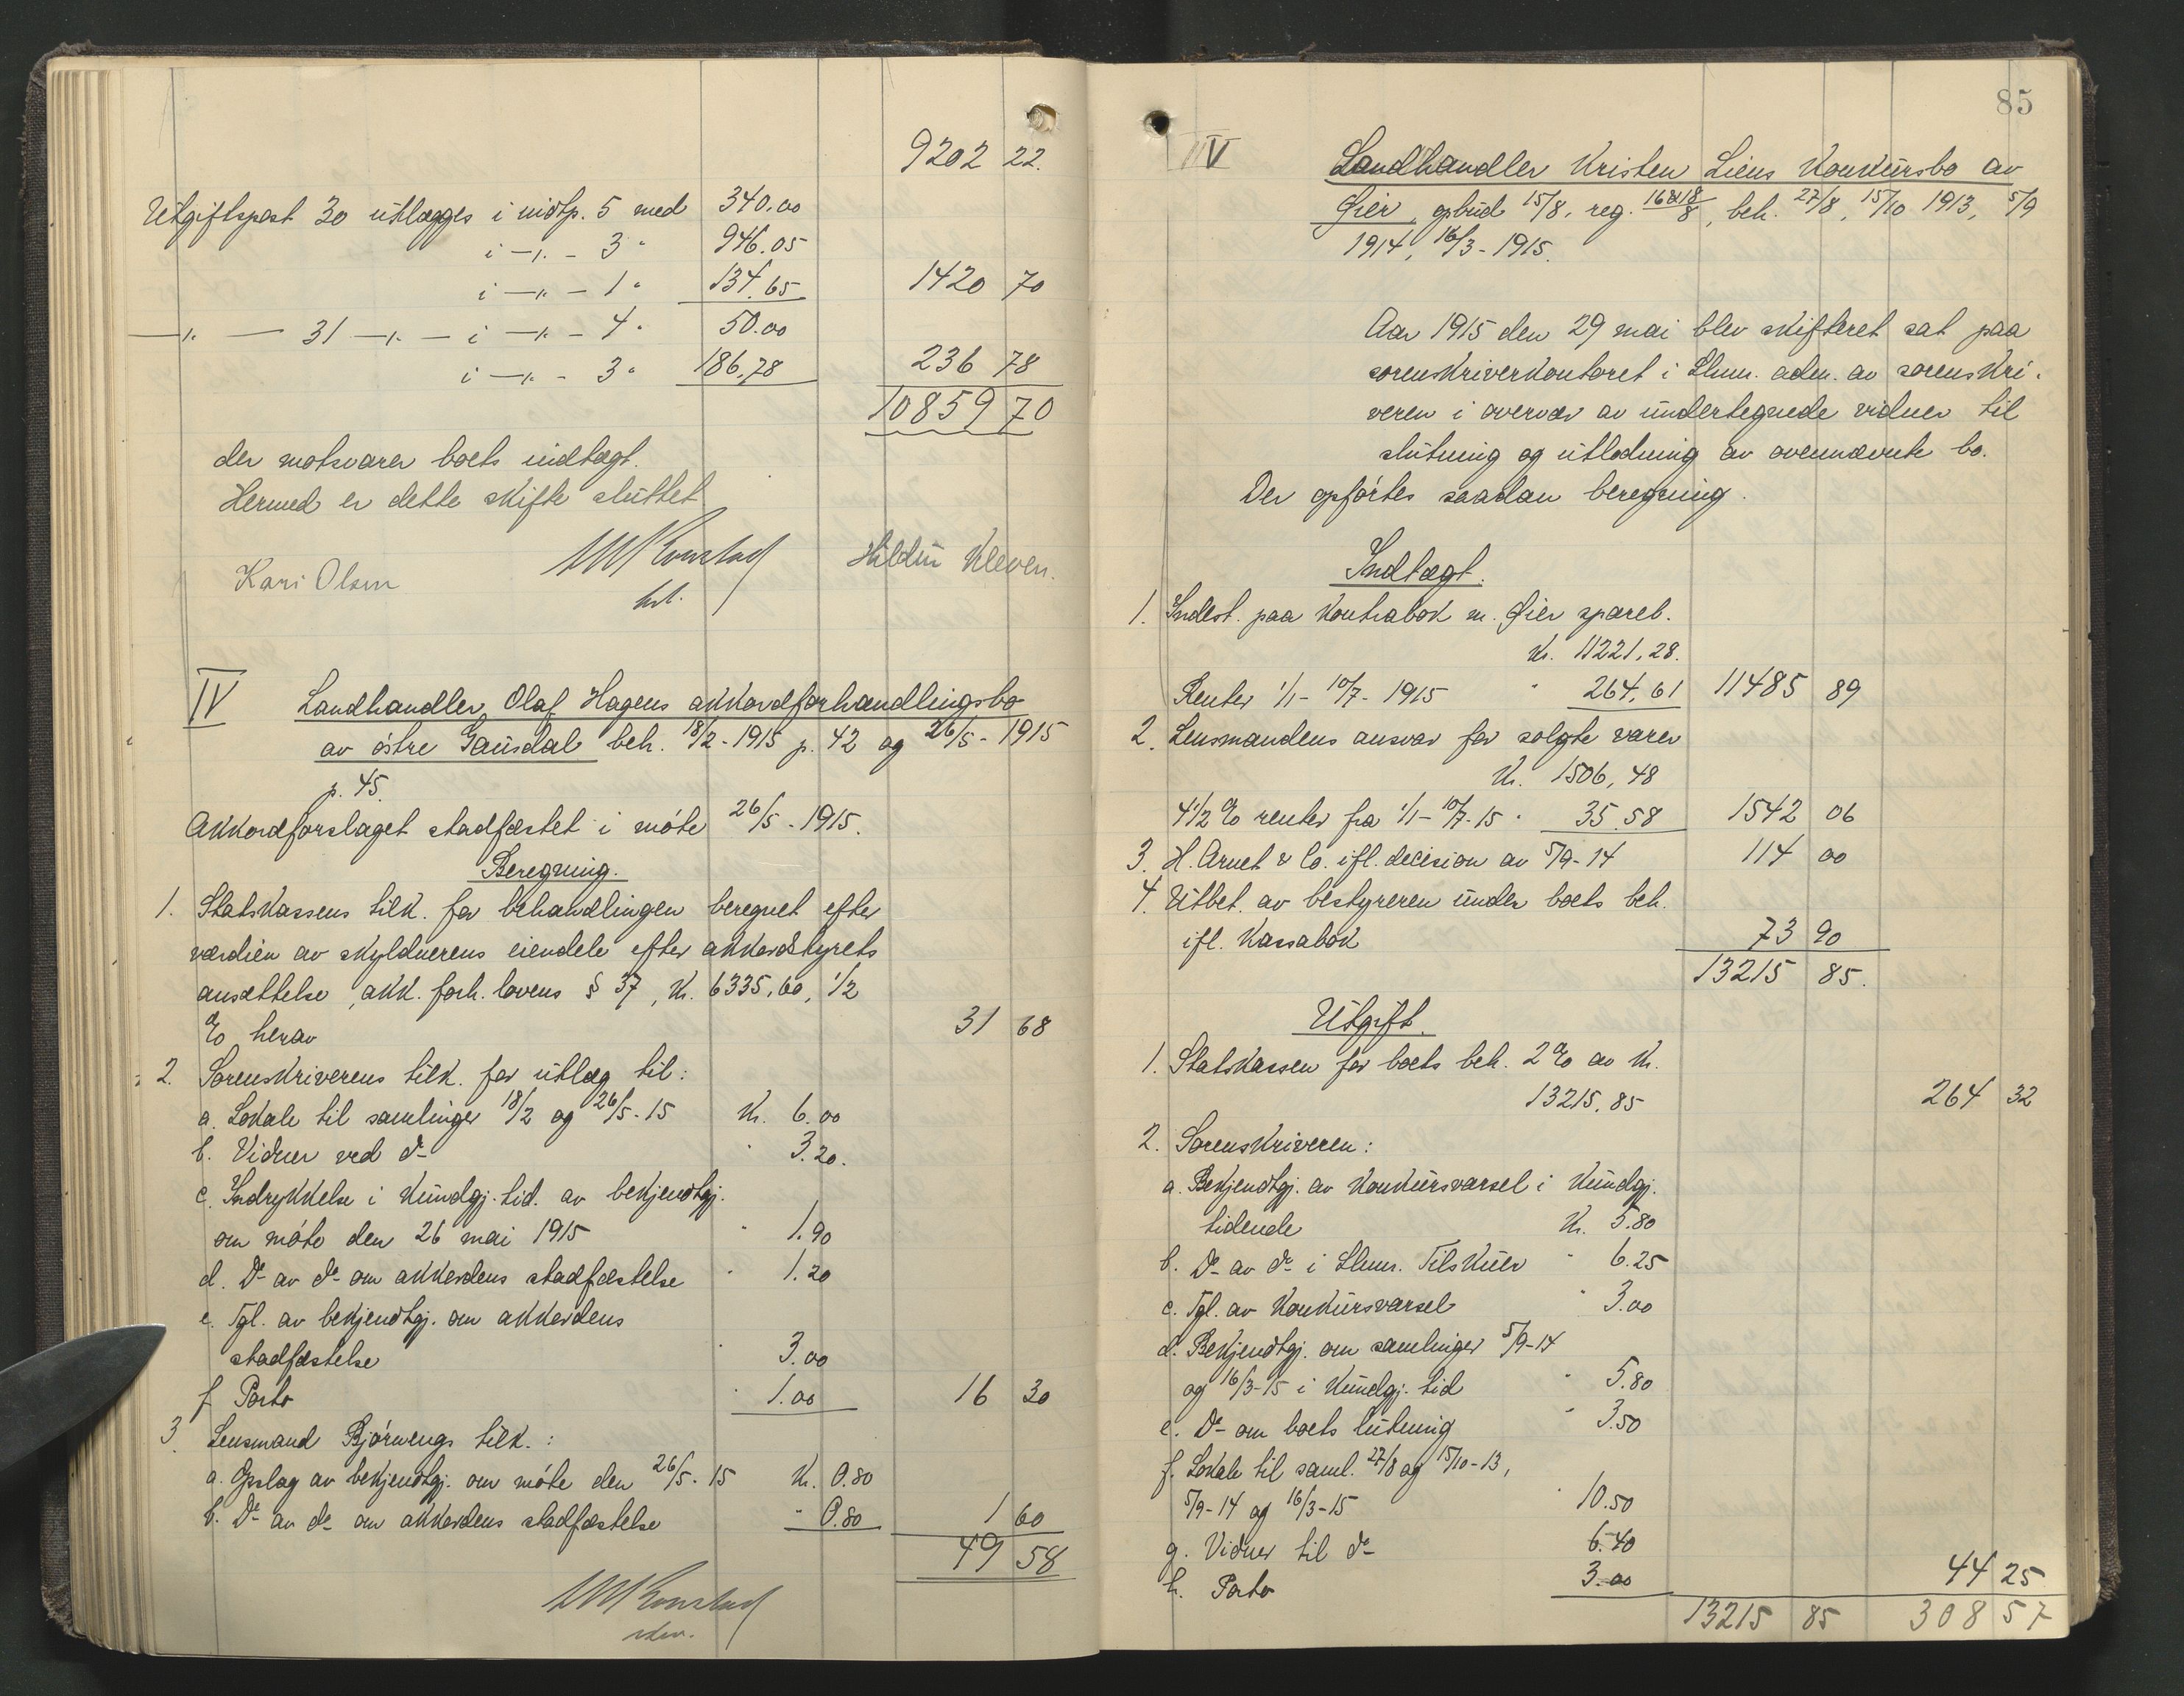 9202 22.
Utgiftspost 30 utlægges i midtp. 5 med 340.00
i -"- - 3 " 946.05
i -"- - 1 " 134.65 1420 70
-"- - 31 -"- - i -"- - 4 " 50.00
i -"- - 3 " 186.78 236 78
10859 70
der motsvarer boets indtægt.
Hermed er dette skifte sluttet
Kari Olsen Hildur Kleven.
IV Landhandler Olaf Hagens akkordforhandlingsbo
av østre Gausdal beh. 18/2-1915 p. 42 og 26/5-1915
p. 45.
Akkordforslaget stadfæstet i møte 26/5-1915.
Beregning.
1. Statskassens tilk. for behandlingen beregnet efter
værdien av skyldnerens eiendele efter akkordstyrets
ansættelse, akk. forh. lovens § 37, Kr. 6335,60, 1/2
% herav 31 68
2. Sorenskriverens tilk. for utlæg til:
a. Lokale til samlinger 18/2 og 26/5-15 Kr. 6.00
b. Vidner ved do " 3.20.
c. Indrykkelse i Kundgj. tid. av bekjendtgj.
om møte den 26 mai 1915 " 1.90
d. Do av do om akkordens stadfæstelse " 1.20
e. Tgl. av bekjendtgj. om akkordens
stadfæstelse " 3.00
f. Porto " 1.00 16 30
3. Lensmand Bjørnengs tilk.:
a. Opslag av bekjendtgj. om møte den 26/5-15 Kr. 0.80
b. Do av do om akkordens stadfæstelse " 0.80 1 60
49 58
85
V Landhandler Kristen Liens Konkursbo av
Øier, opbud 15/8, reg. 16&18/8, beh. 27/8, 15/10 1913, 5/9
1914, 16/3-1915.
Aar 1915 den 29 mai blev skifteret sat paa
sorenskriverkontoret i Lhmr. adm. av sorenskri-
veren i overvær av undertegnede vidner til
slutning og utlodning av ovennævnte bo.
Der opførtes saadan beregning.
Indtægt.
1. Indest. paa Kontrabok m. Øier spareb.
Kr. 11221,28.
Renter 1/1-10/7-1915 " 264,61 11485 89
2. Lensmandens ansvar for solgte varer
Kr. 1506,48
4 1/2 % renter fra 1/1-10/7-15 " 35.58 1542 06
3. H. Arnet & Co. ifl. decision av 5/9-14 114 00
4. Utbet. av bestyreren under boets beh.
ifl. Kassabok 73 90
13215 85.
Utgift.
1. Statskassen for boets beh. 2 % av Kr.
13215,85 264 32
2. Sorenskriveren:
a. Bekjendtgj. av Konkursvarsel i Kundgj.
tidende Kr. 5.80
b. Do av do i Lhmr. Tilskuer " 6.25
c. Tgl. av Konkursvarsel " 3.00
d. Bekjendtgj. om samlinger 5/9-14
og 16/3-15 i Kundgj. tid " 5.80
e. Do om boets slutning " 3.50
f. Lokale til saml. 27/8 og 15/10-13,
5/9-14 og 16/3-15 " 10.50
g. Vidner til do 6.40
h. Porto 3.00 44 25
13215 85 308 57